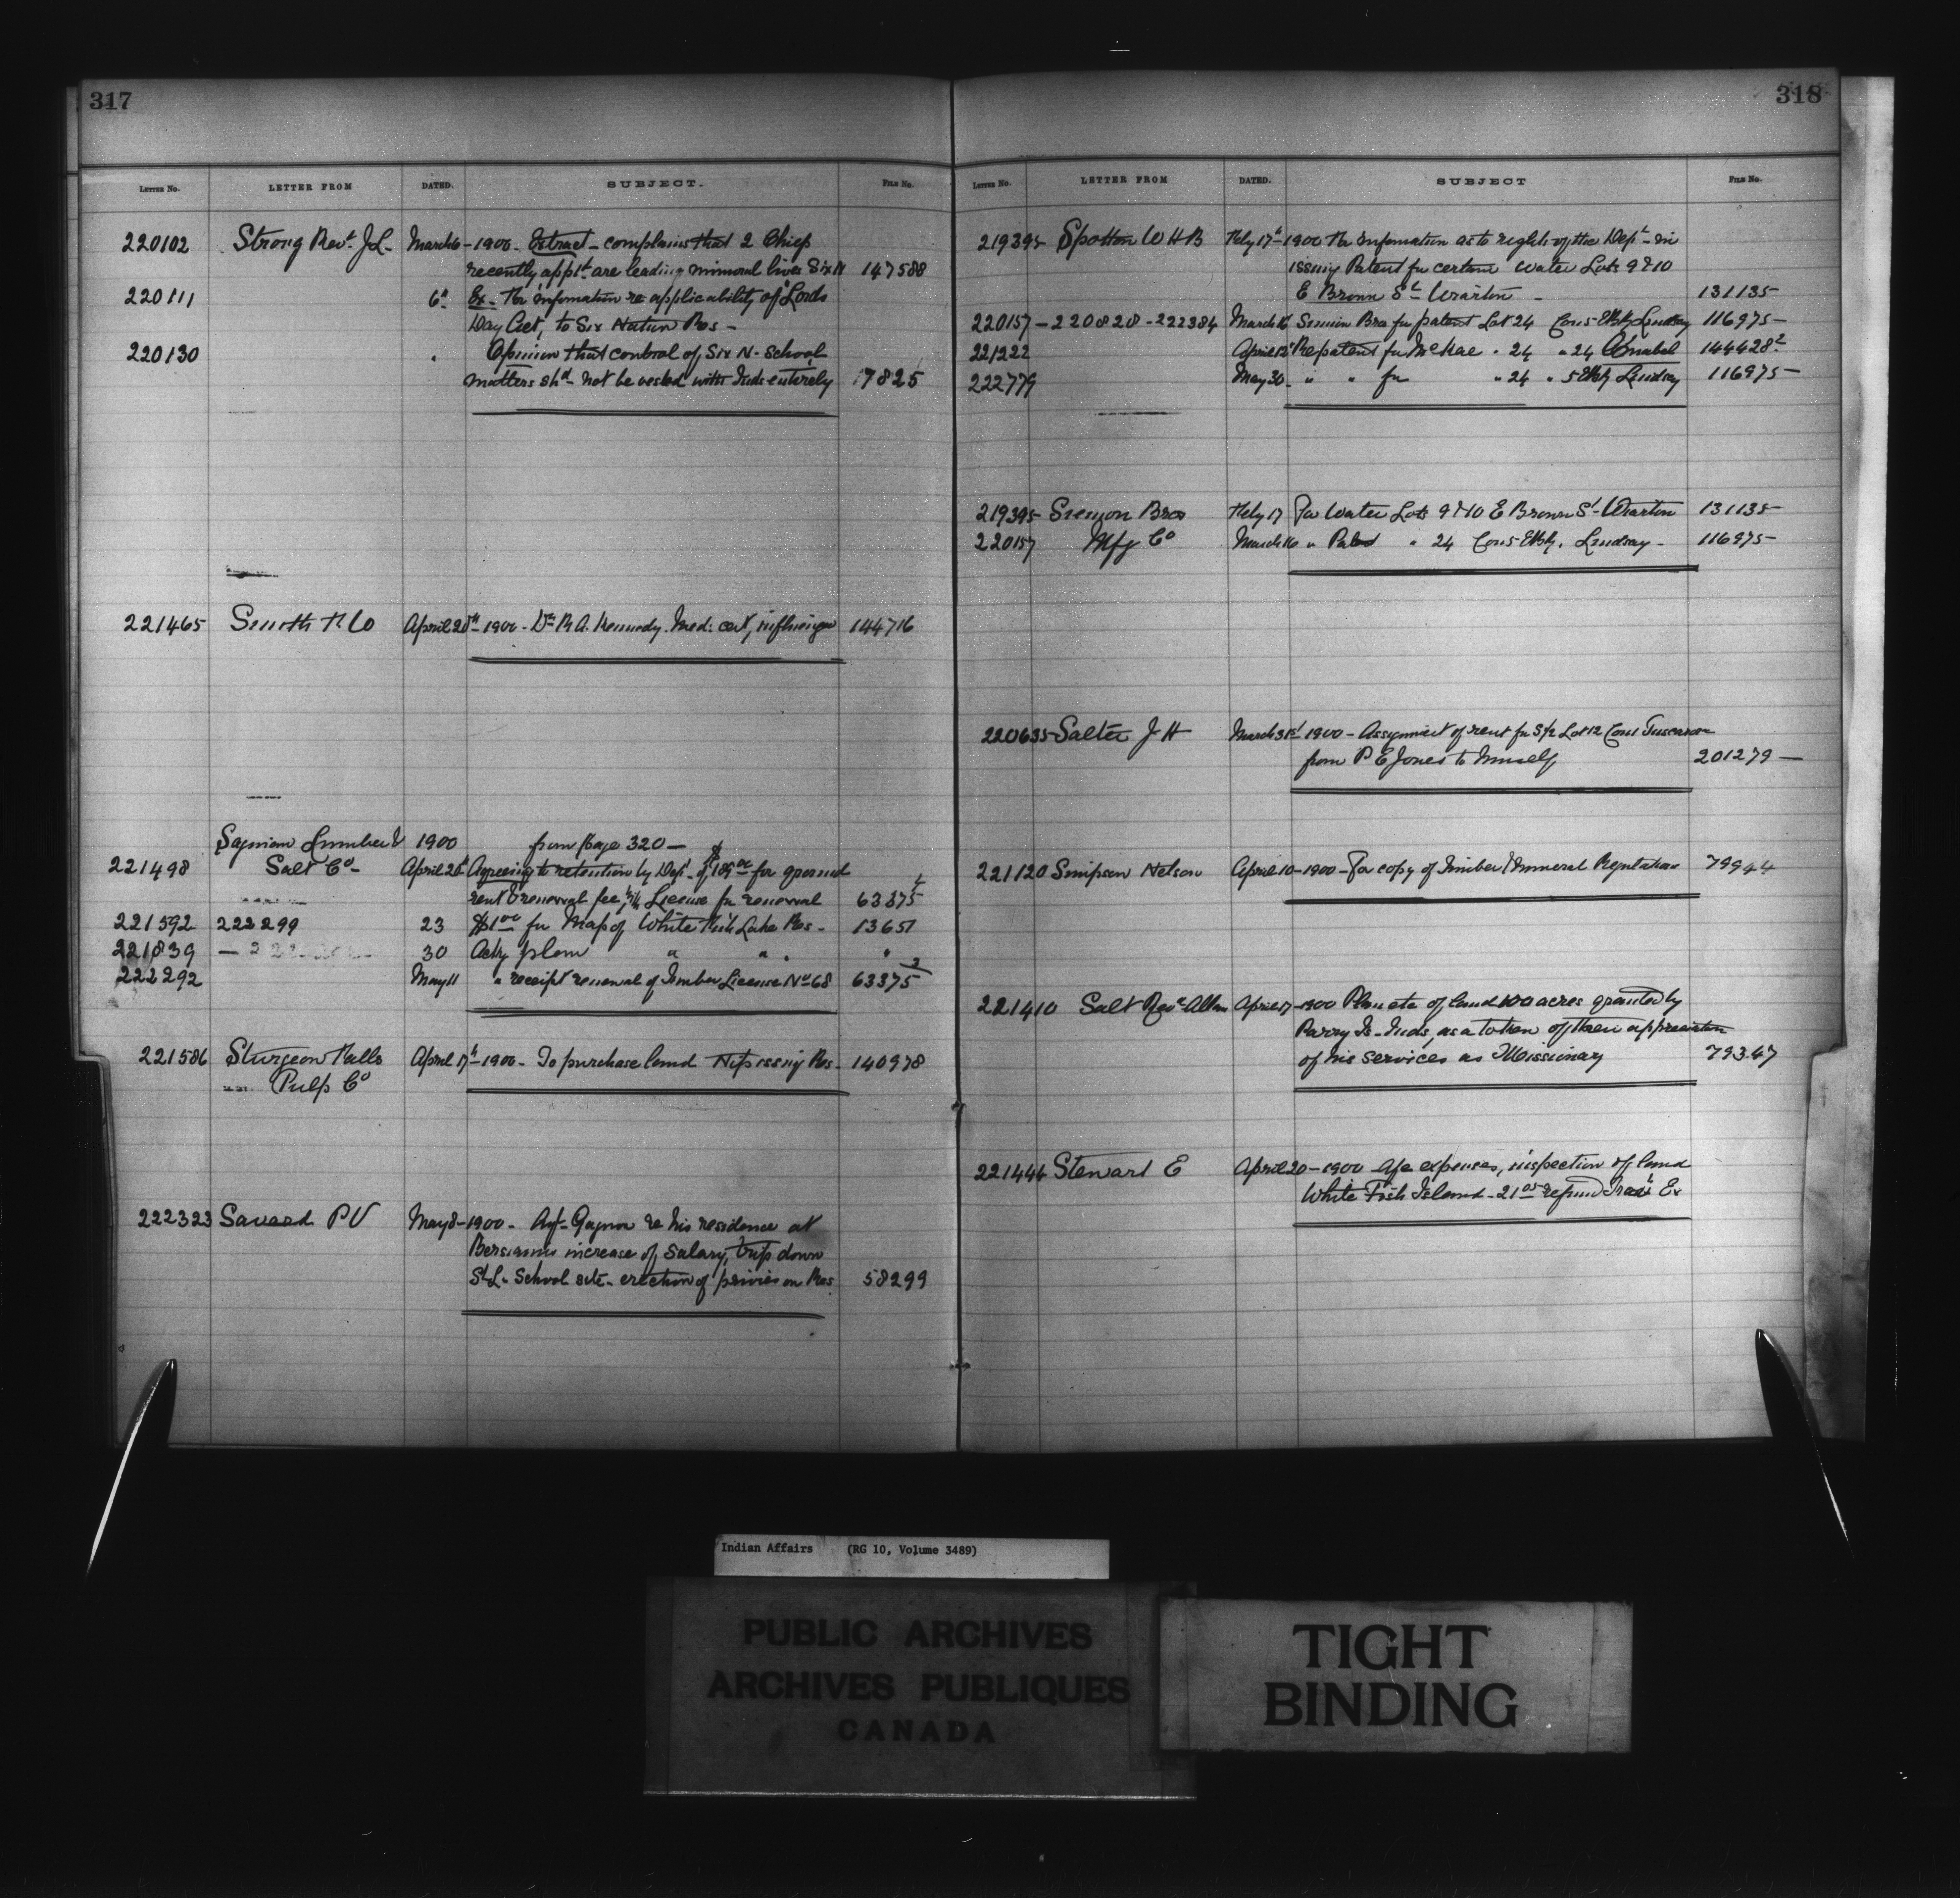 317
LETTER NO. LETTER FROM DATED. SUBJECT. FILE NO.
220102 Strong Revd J.L. March 6 - 1900 - Extract - complains that 2 Chiefs
recently appt are leading immoral lives Six N 147588
220111 6" Ex - for information re applicability of "Lords
Day Act", to Six Nation Res -
220130 " Opinion that control of Six N- School
matters shd not be vested with Inds entirely 17825
221465 Smith & Co April 20th 1900 - Dr R A. Kennedy. Med: cert, 144716
Saginaw Lumber & 1900 from page 320 -
221498 Salt Co - April 20 Agreeing to retention by Dept of $189 00 for ground
rent & renewal fee, License for renewal 63375
221592 222299 23 $1 00 for Map of White Fish Lake Res - 13651
221839 30 Ackg plan " " "
222292 May 11 " receipt renewal of Timber License No 68 63375 2
221586 Sturgeon Falls April 17th - 1900 - To purchase land Nipissing Res - 140978
Pulp Co
222323 Savard P V May 8 - 1900 - Agt Gagnon re his residence at
Bersimis increase of salary, trip down
St L- School site - erection of privies on Res. 58299
318
LETTER NO. LETTER FROM DATED. SUBJECT FILE NO.
219395 Spotton W H B Feby 17th 1900 For information as to rights of the Dept in
issuing Patent for certain Water Lots 9 & 10
E Brown St Wiarton - 131135-
220157 - 220828 - 222384 March 16 Siemon Bros for patent Lot 24 Con 5 EBky Lindsay 116975-
221222 April 12 Re patent for McRae " 24 " 24 Amabel 144428 2
222779 May 30 - " " for " 24 " 5 EBky Lindsay 116975-
219395 Siemon Bros Feby 17 For Water Lots 9 & 10 E Brown St - Wiarton 131135-
220157 Mfg Co March 16 " Patent " 24 Con 5 EBky. Lindsay - 116975-
220635 Salter J H March 31st 1900 - Assignment of rent for S½ Lot 12 Con 1 Tuscarora
from P E Jones to himself 201279 -
221120 Simpson Nelson April 10 - 1900 - For copy of Timber & Mineral Regulations 79944
221410 Salt Revd Allen April 17 - 1900 Plan etc of land 100 acres granted by
Parry Is. Inds, as a token of their appreciation
of his services as Missionary 79347
221446 Stewart E April 20 - 1900 - A/c expenses, inspection of land
White Fish Island - 21 05 refund Trav Ex
Indian Affairs (RG 10, Volume 3489)
PUBLIC ARCHIVES
ARCHIVES PUBLIQUES
CANADA
TIGHT
BINDING